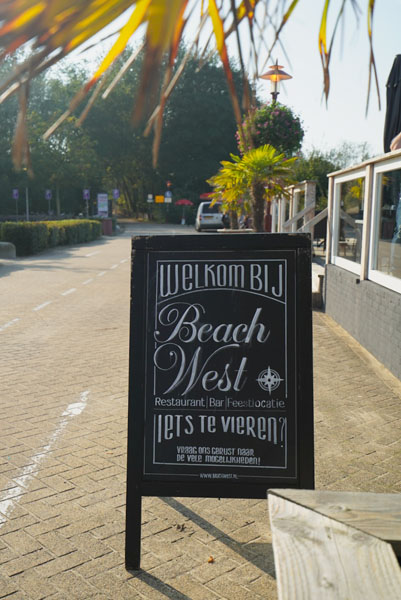 WELKOM BIJ
Beach
West
Restaurant | Bar | Feestlocatie
IETS TE VIEREN?
VRAAG ONS GERUST NAAR
DE VELE MOGELIJKHEDEN!